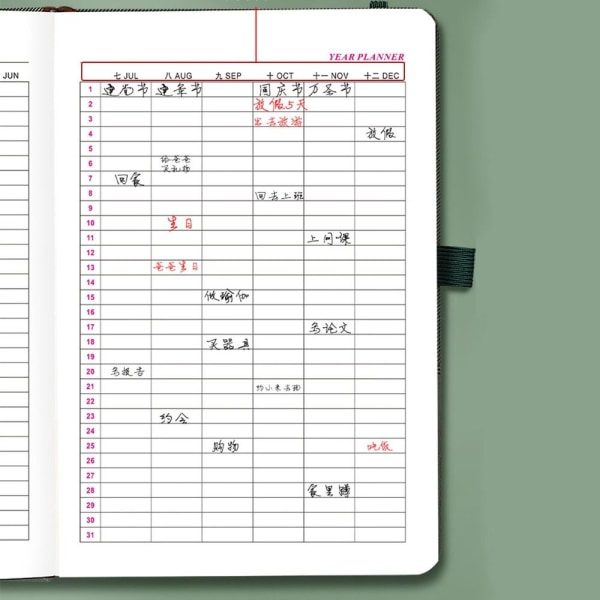 YEAR PLANNER
JUN 七 JUL 八 AUG 九 SEP 十 OCT 十一 NOV 十二 DEC
1 建党节 建军节 国庆节 万圣节
2 放假5天
3 出去旅游
4 放假
5
6 给爸爸
买礼物
7 回家
8 回去上班
9
10 生日
11 上网课
12
13 爸爸生日
14
15 做瑜伽
16
17 写论文
18 买器具
19
20 写报告
21 约小美去
22
23 约会
24
25 购物 吃饭
26
27
28 家里蹲
29
30
31